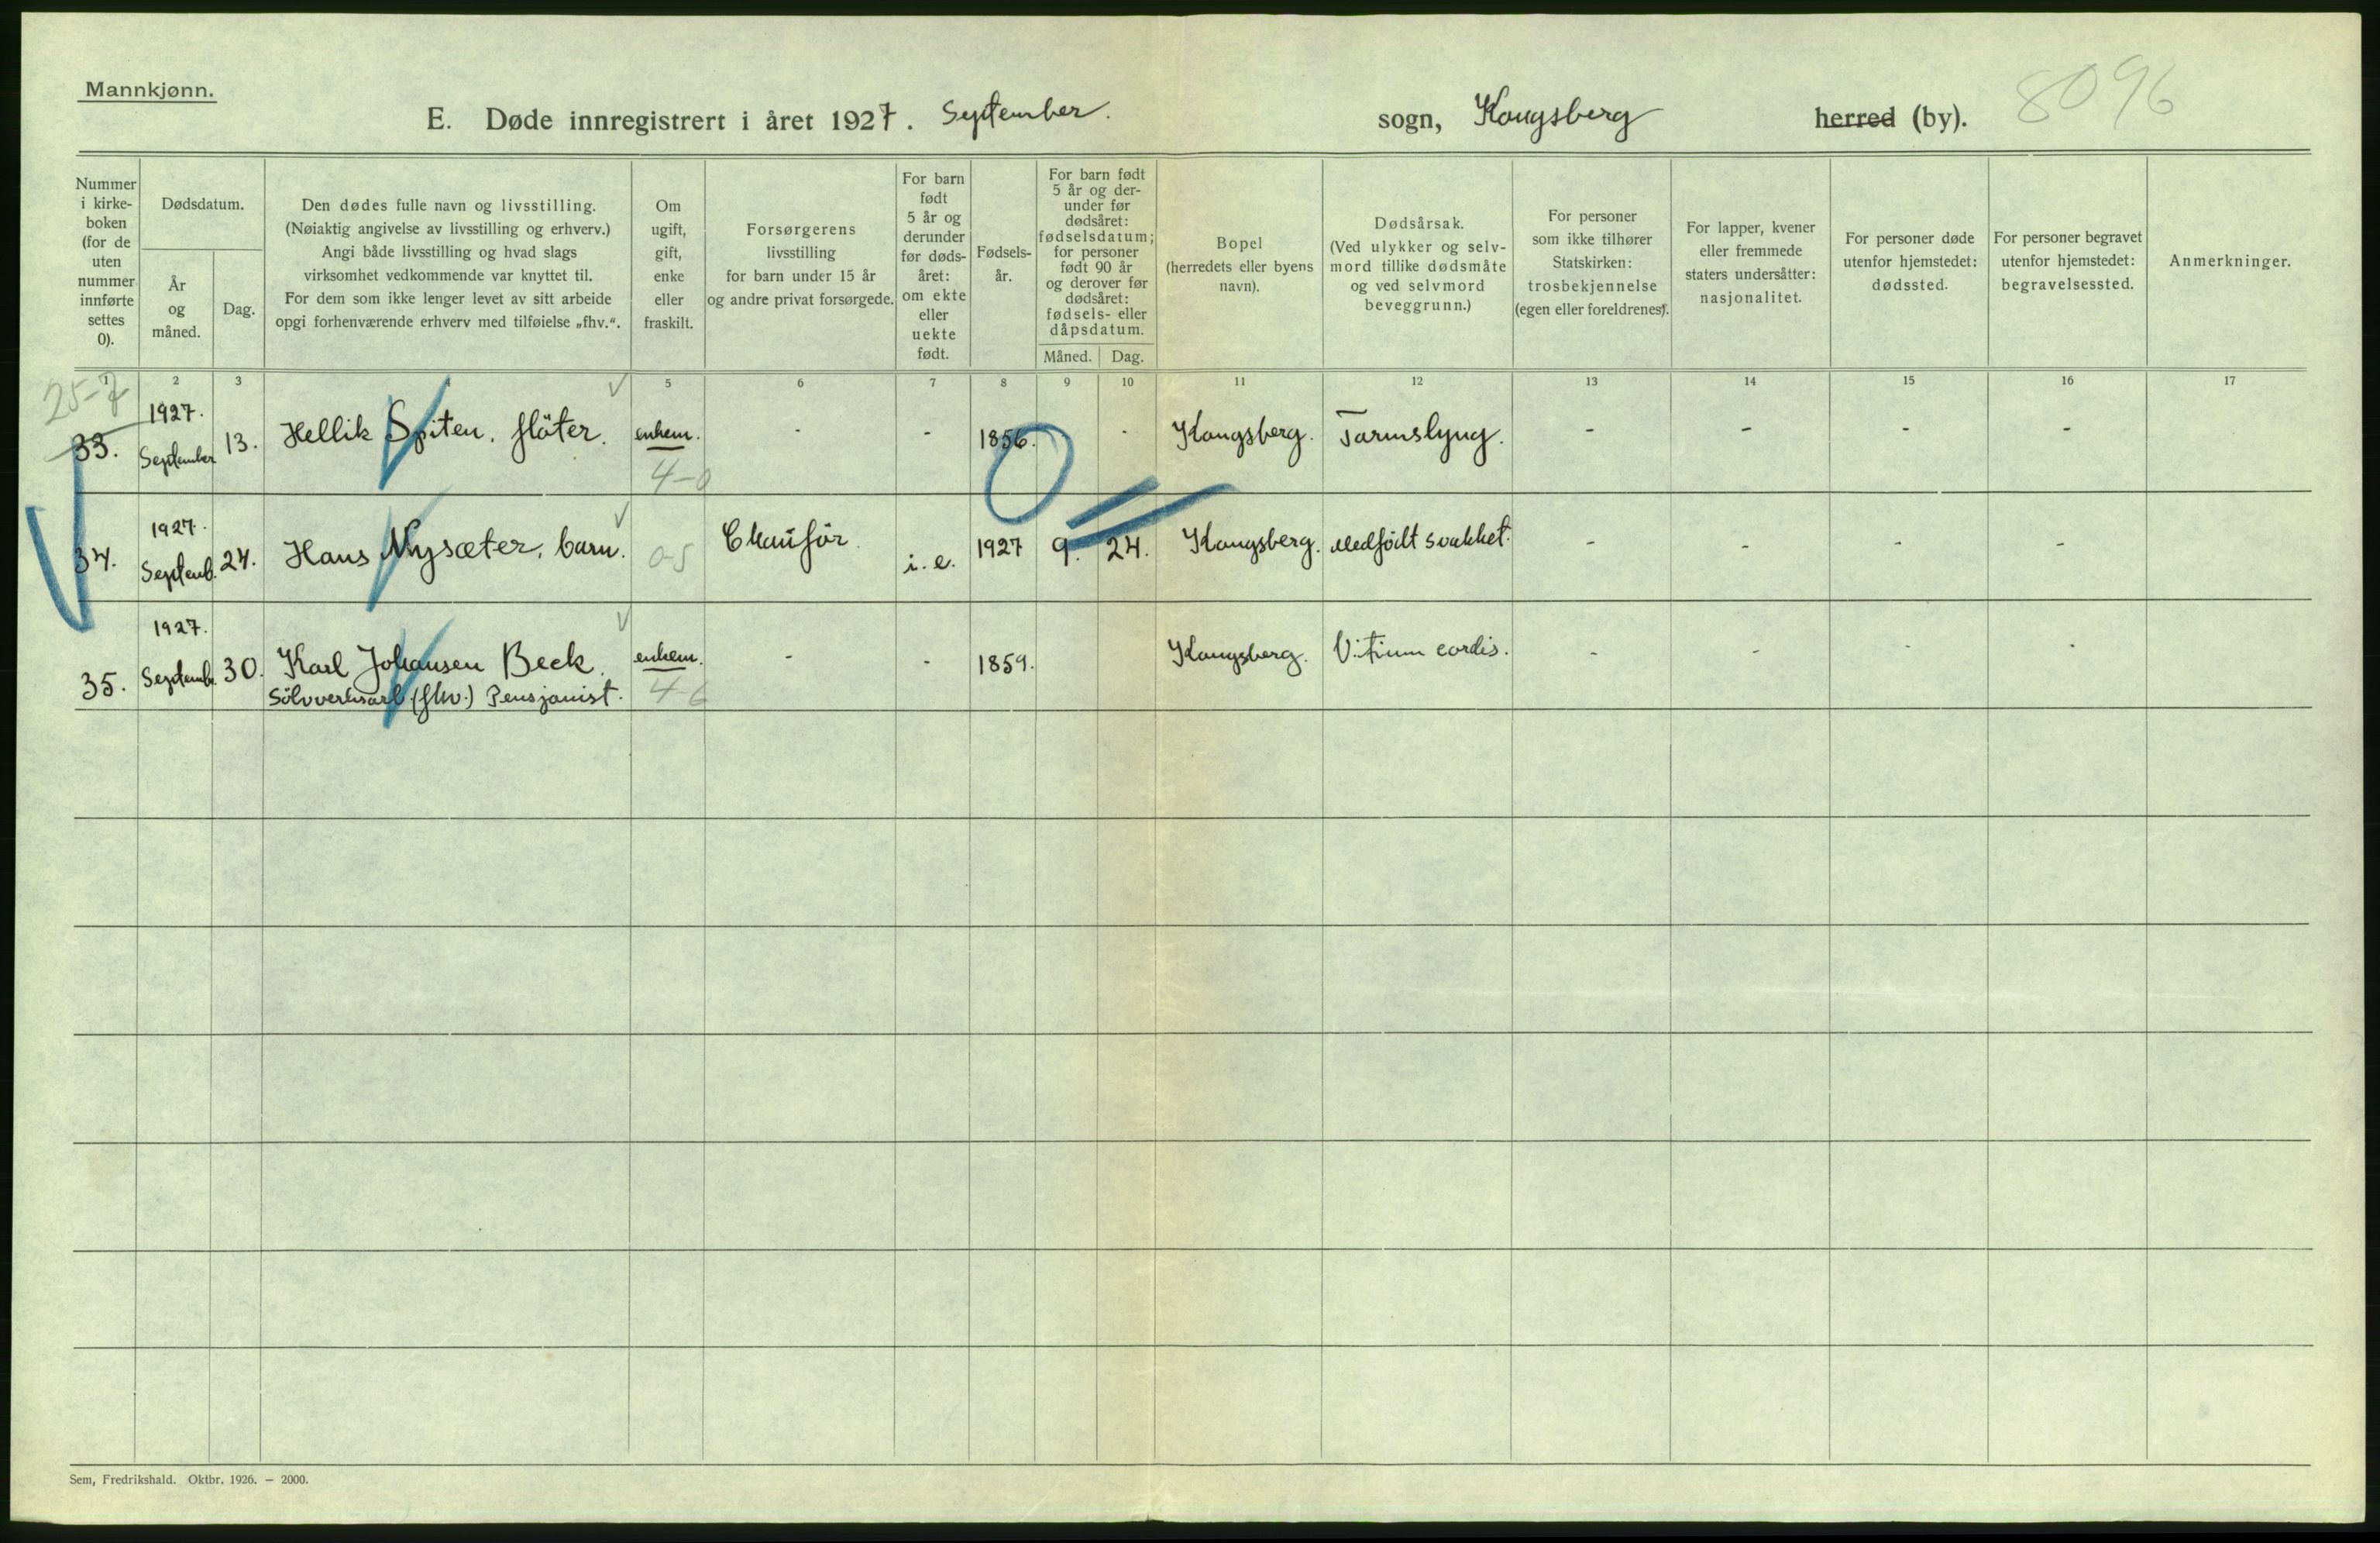 Mannkjønn.
E. Døde innregistrert i året 1927. September. sogn, Kongsberg herred (by). 8096
Nummer i kirke- boken (for de uten nummer innførte settes 0).
Dødsdatum.
År og måned.
Dag.
Den dødes fulle navn og livsstilling.
(Nøiaktig angivelse av livsstilling og erhverv.)
Angi både livsstilling og hvad slags
virksomhet vedkommende var knyttet til.
For dem som ikke lenger levet av sitt arbeide
opgi forhenværende erhverv med tilføielse „fhv.“.
Om ugift, gift, enke eller fraskilt.
Forsørgerens
livsstilling
for barn under 15 år
og andre privat forsørgede.
For barn født 5 år og derunder før døds- året: om ekte eller uekte født.
Fødsels- år.
For barn født 5 år og der- under før dødsåret: fødselsdatum; for personer født 90 år og derover før dødsåret: fødsels- eller dåpsdatum.
Måned.
Dag.
Bopel
(herredets eller byens
navn).
Dødsårsak.
(Ved ulykker og selv-
mord tillike dødsmåte
og ved selvmord
beveggrunn.)
For personer
som ikke tilhører
Statskirken:
trosbekjennelse
(egen eller foreldrenes).
For lapper, kvener
eller fremmede
staters undersåtter:
nasjonalitet.
For personer døde
utenfor hjemstedet:
dødssted.
For personer begravet
utenfor hjemstedet:
begravelsessted.
Anmerkninger.
1 2 3 4 5 6 7 8 9 10 11 12 13 14 15 16 17
25-7
33. 1927. September 13. Hellik Spiten. fløter. enkem. - - 1856. - Kongsberg. Tarmslyng. - - - -
4-0
34. 1927. Septemb. 24. Hans Nysæter, barn. 0-5 Chauffør. i. e. 1927 9. 24. Kongsberg. Medfødt svakhet. - - - -
35. 1927. Septemb. 30. Karl Johansen Beck. enkem. - - 1859. Kongsberg. Vitium cordis. - - - -
Sölvverksarb (fhv.) Pensjonist. 4-6
Sem, Fredrikshald. Oktbr. 1926. — 2000.